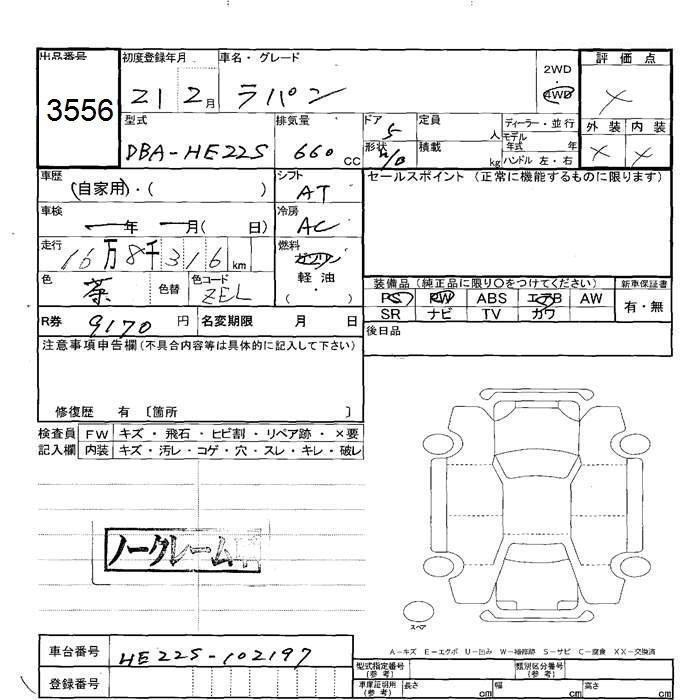 出品番号 初度登録年月 車名・グレード 2WD 評価点
3556 21 2月 ラパン 4WD ×
型式 排気量 ドア 定員 ディーラー・並行 外装 内装
DBA-HE22S 660 CC 5 人 モデル年式 年 × ×
形状 H/B 積載 kg ハンドル 左・右
車歴 (自家用)・( ) シフト AT セールスポイント (正常に機能するものに限ります)
車検 ー年 ー月( 日) 冷房 AC
走行 16万8千316 km 燃料 ガソリン
軽油
・( )
色 茶 色替 色コード ZEL
装備品 (純正品に限り○をつけてください) 新車保証書
PS PW ABS エアB AW 有・無
SR ナビ TV カワ
R券 9170 円 名変期限 月 日
後日品
注意事項申告欄(不具合内容等は具体的に記入して下さい)
修復歴 有 〔箇所 〕
検査員 FW キズ・飛石・ヒビ割・リペア跡・×要
記入欄 内装 キズ・汚レ・コゲ・穴・スレ・キレ・破レ
ノークレーム
スペア
A-キズ E-エクボ U-凹み W-補修跡 S-サビ C-腐食 XX-交換済
車台番号 HE22S-102197
型式指定番号(参考) 類別区分番号(参考)
登録番号
車庫証明用(参考) 長さ cm 幅 cm 高さ cm